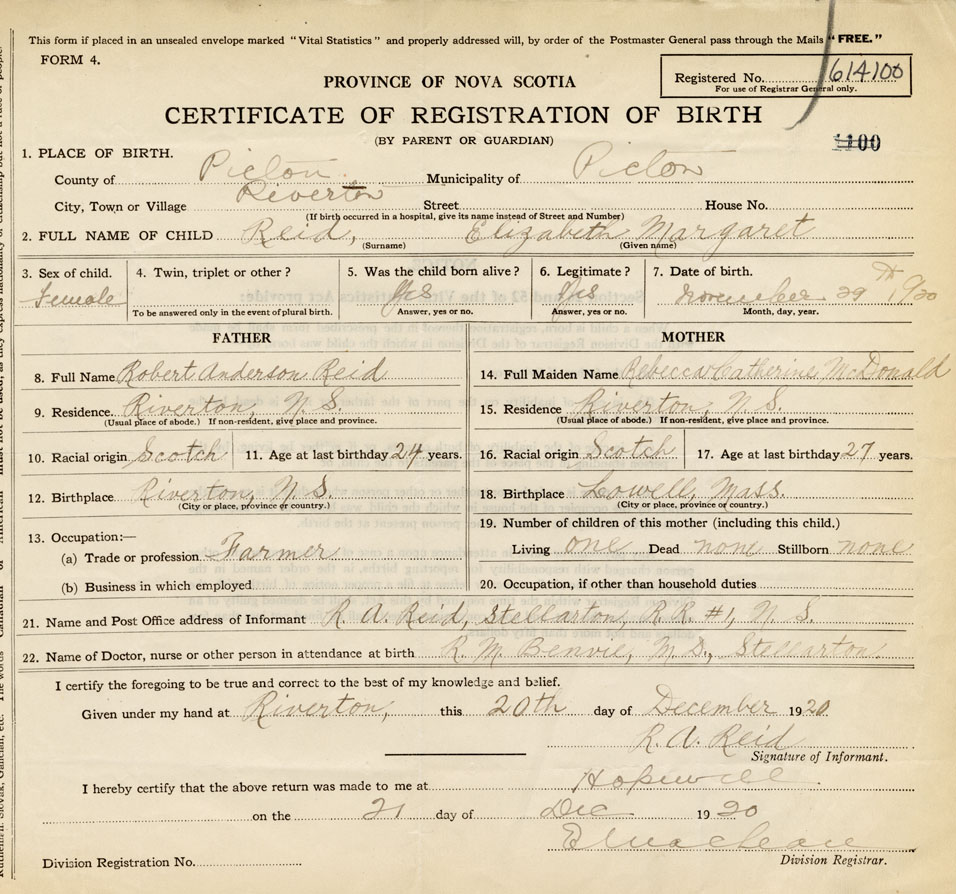 This form if placed in an unsealed envelope marked "Vital Statistics" and properly addressed will, by order of the Postmaster General pass through the Mails "FREE."
FORM 4.
Registered No. 614100
For use of Registrar General only.
PROVINCE OF NOVA SCOTIA
CERTIFICATE OF REGISTRATION OF BIRTH
(BY PARENT OR GUARDIAN)
1100
1. PLACE OF BIRTH.
County of Pictou Municipality of Pictou
City, Town or Village Riverton Street House No.
(If birth occurred in a hospital, give its name instead of Street and Number)
2. FULL NAME OF CHILD Reid, Elizabeth Margaret
(Surname) (Given name)
3. Sex of child. 4. Twin, triplet or other? 5. Was the child born alive? 6. Legitimate? 7. Date of birth.
Female Yes Yes November 29th 1920
To be answered only in the event of plural birth. Answer, yes or no. Answer, yes or no. Month, day, year.
FATHER MOTHER
8. Full Name Robert Anderson Reid 14. Full Maiden Name Rebecca Catherine McDonald
9. Residence. Riverton, N.S. 15. Residence Riverton, N.S.
(Usual place of abode.) If non-resident, give place and province. (Usual place of abode.) If non-resident, give place and province.
10. Racial origin Scotch 11. Age at last birthday 24 years. 16. Racial origin Scotch 17. Age at last birthday 27 years.
12. Birthplace Riverton, N.S. 18. Birthplace Lowell, Mass.
(City or place, province or country.) (City or place, province or country.)
13. Occupation:— 19. Number of children of this mother (including this child.)
(a) Trade or profession Farmer Living one Dead none Stillborn none
(b) Business in which employed 20. Occupation, if other than household duties
21. Name and Post Office address of Informant R. A. Reid, Stellarton, R.R. #1, N.S.
22. Name of Doctor, nurse or other person in attendance at birth R. M. Benvie, M.D., Stellarton
I certify the foregoing to be true and correct to the best of my knowledge and belief.
Given under my hand at Riverton, this 20th day of December 1920
R. A. Reid
Signature of Informant.
I hereby certify that the above return was made to me at Hopewell
on the 21 day of Dec 1920
Division Registration No. Division Registrar.